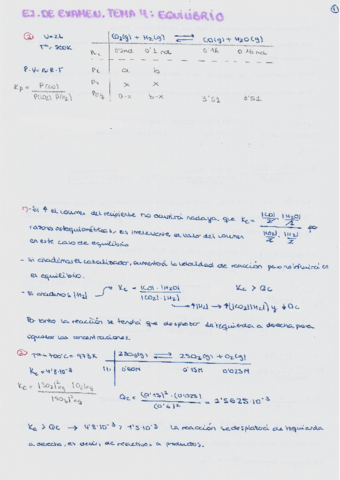 EJ. DE EXAMEN. TEMA 4: EQUILIBRIO
CO2(g) + H2(g) ⇌ CO(g) + H2O(g)
P·V = n·R·T
a b
x x
a-x b-x 3'51 3'51
Kp = P(CO) / P(CO2) P(H2)
- Si ↑ el volumen del recipiente no ocurrirá nada ya que Kc = por
razones estequiométricas, es irrelevante el valor del volumen
en este caso de equilibrio
- Si añadimos el catalizador, aumentará la velocidad de reacción pero no influirá en
el equilibrio.
- Si añadimos [H2] Kc = [CO]·[H2O] / [CO2]·[H2] Kc > Qc
↑[H2] → ↑([CO2][H2]) y ↓Qc
Por tanto la reacción se tendrá que desplazar de izquierda a derecha para
equilibrar las concentraciones.
2SO3(g) ⇌ 2SO2(g) + O2(g)
Kc = 4'8·10⁻³ 0'60M 0'15M 0'025M
Kc = [SO2]² [O2] / [SO3]²
Qc = (0'15)²·(0'025) / (0'6)² = 1'5625·10⁻³
Kc > Qc → 4'8·10⁻³ > 1'5·10⁻³ La reacción se desplazará de izquierda
a derecha, es decir, de reactivos a productos.